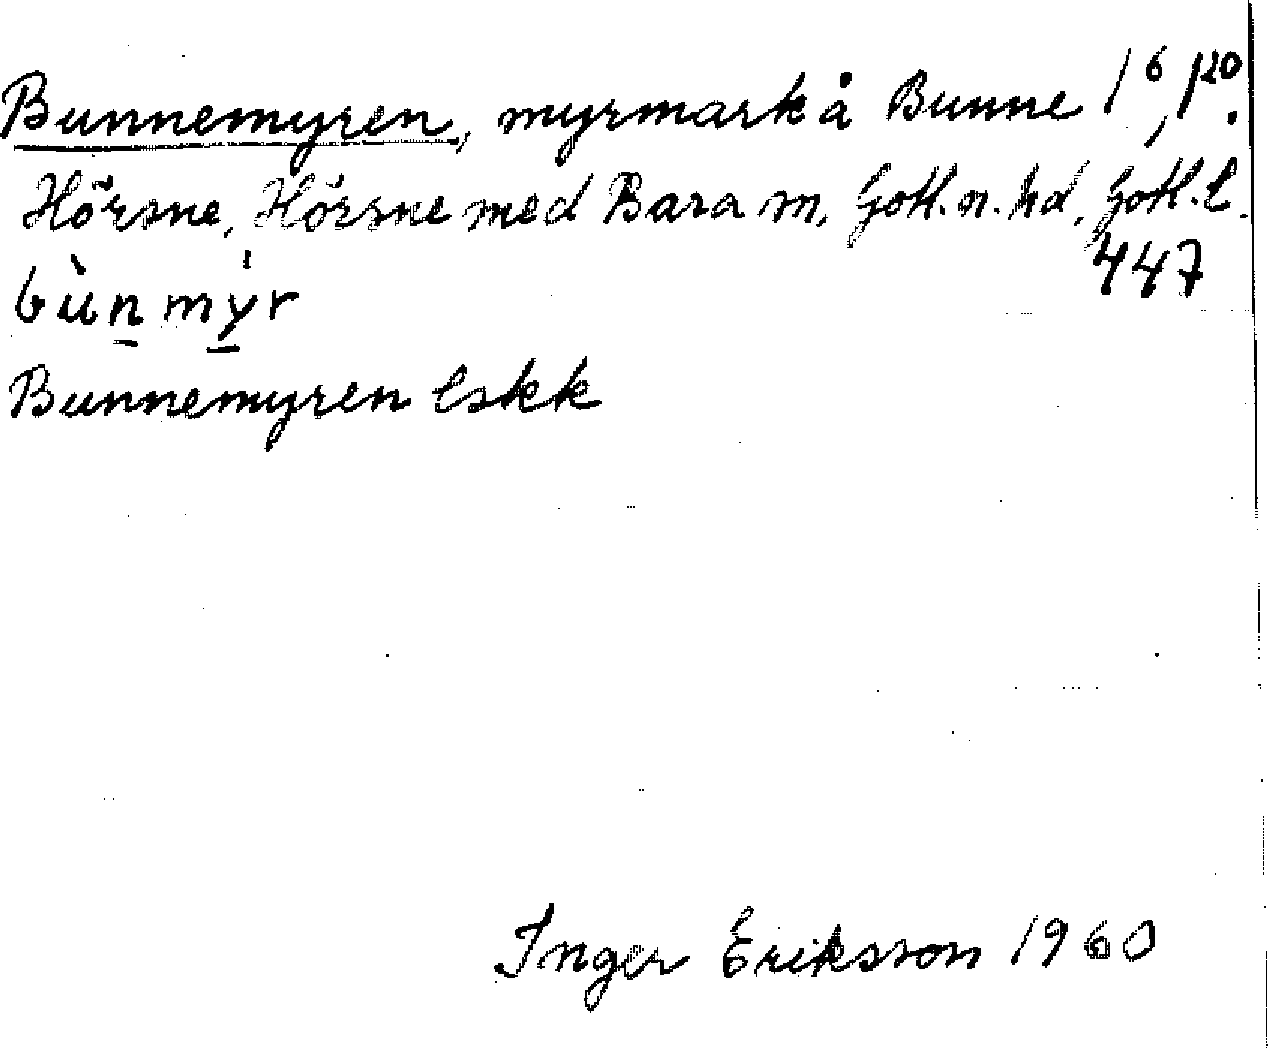 Bunnemyren, myrmark å Bunne 1⁶, 1²⁰.
Hörsne, Hörsne med Bara sn, Gotl. n. hd, Gotl. l.
447
bùn mỳr
Bunnemyren Eskk
Inger Eriksson 1960